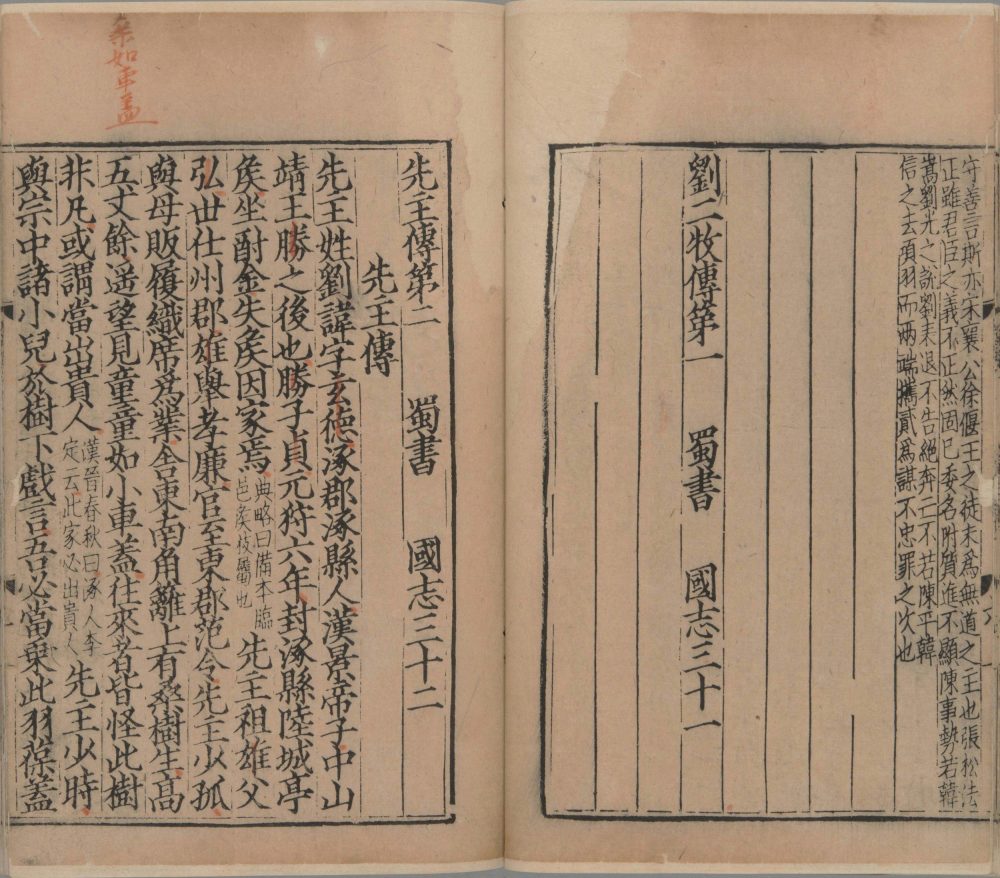 守善言斯亦宋襄公徐偃王之徒未爲無道之王也張松法
正雖君臣之義不正然固已委名附質進不顯陳事勢若韓
嵩劉光之說劉表退不告絕奔亡不若陳平韓
信之去項羽而兩端攜貳爲謀不忠罪之次也
劉二牧傳第一 蜀書 國志三十一
桑如車蓋
先主傳第二 蜀書 國志三十二
先主傳
先主姓劉諱字玄德涿郡涿縣人漢景帝子中山
靖王勝之後也勝子貞元狩六年封涿縣陸城亭
矦坐酎金失矦因家焉典略曰備本臨
邑矦枝屬也先主祖雄父
弘世仕州郡雄舉孝廉官至東郡范令先主少孤
與母販履織席爲業舍東南角籬上有桑樹生高
五丈餘遥望見童童如小車蓋往來者皆怪此樹
非凡或謂當出貴人漢晉春秋曰涿人李
定云此家必出貴人先主少時
與宗中諸小兒於樹下戲言吾必當乗此羽葆蓋